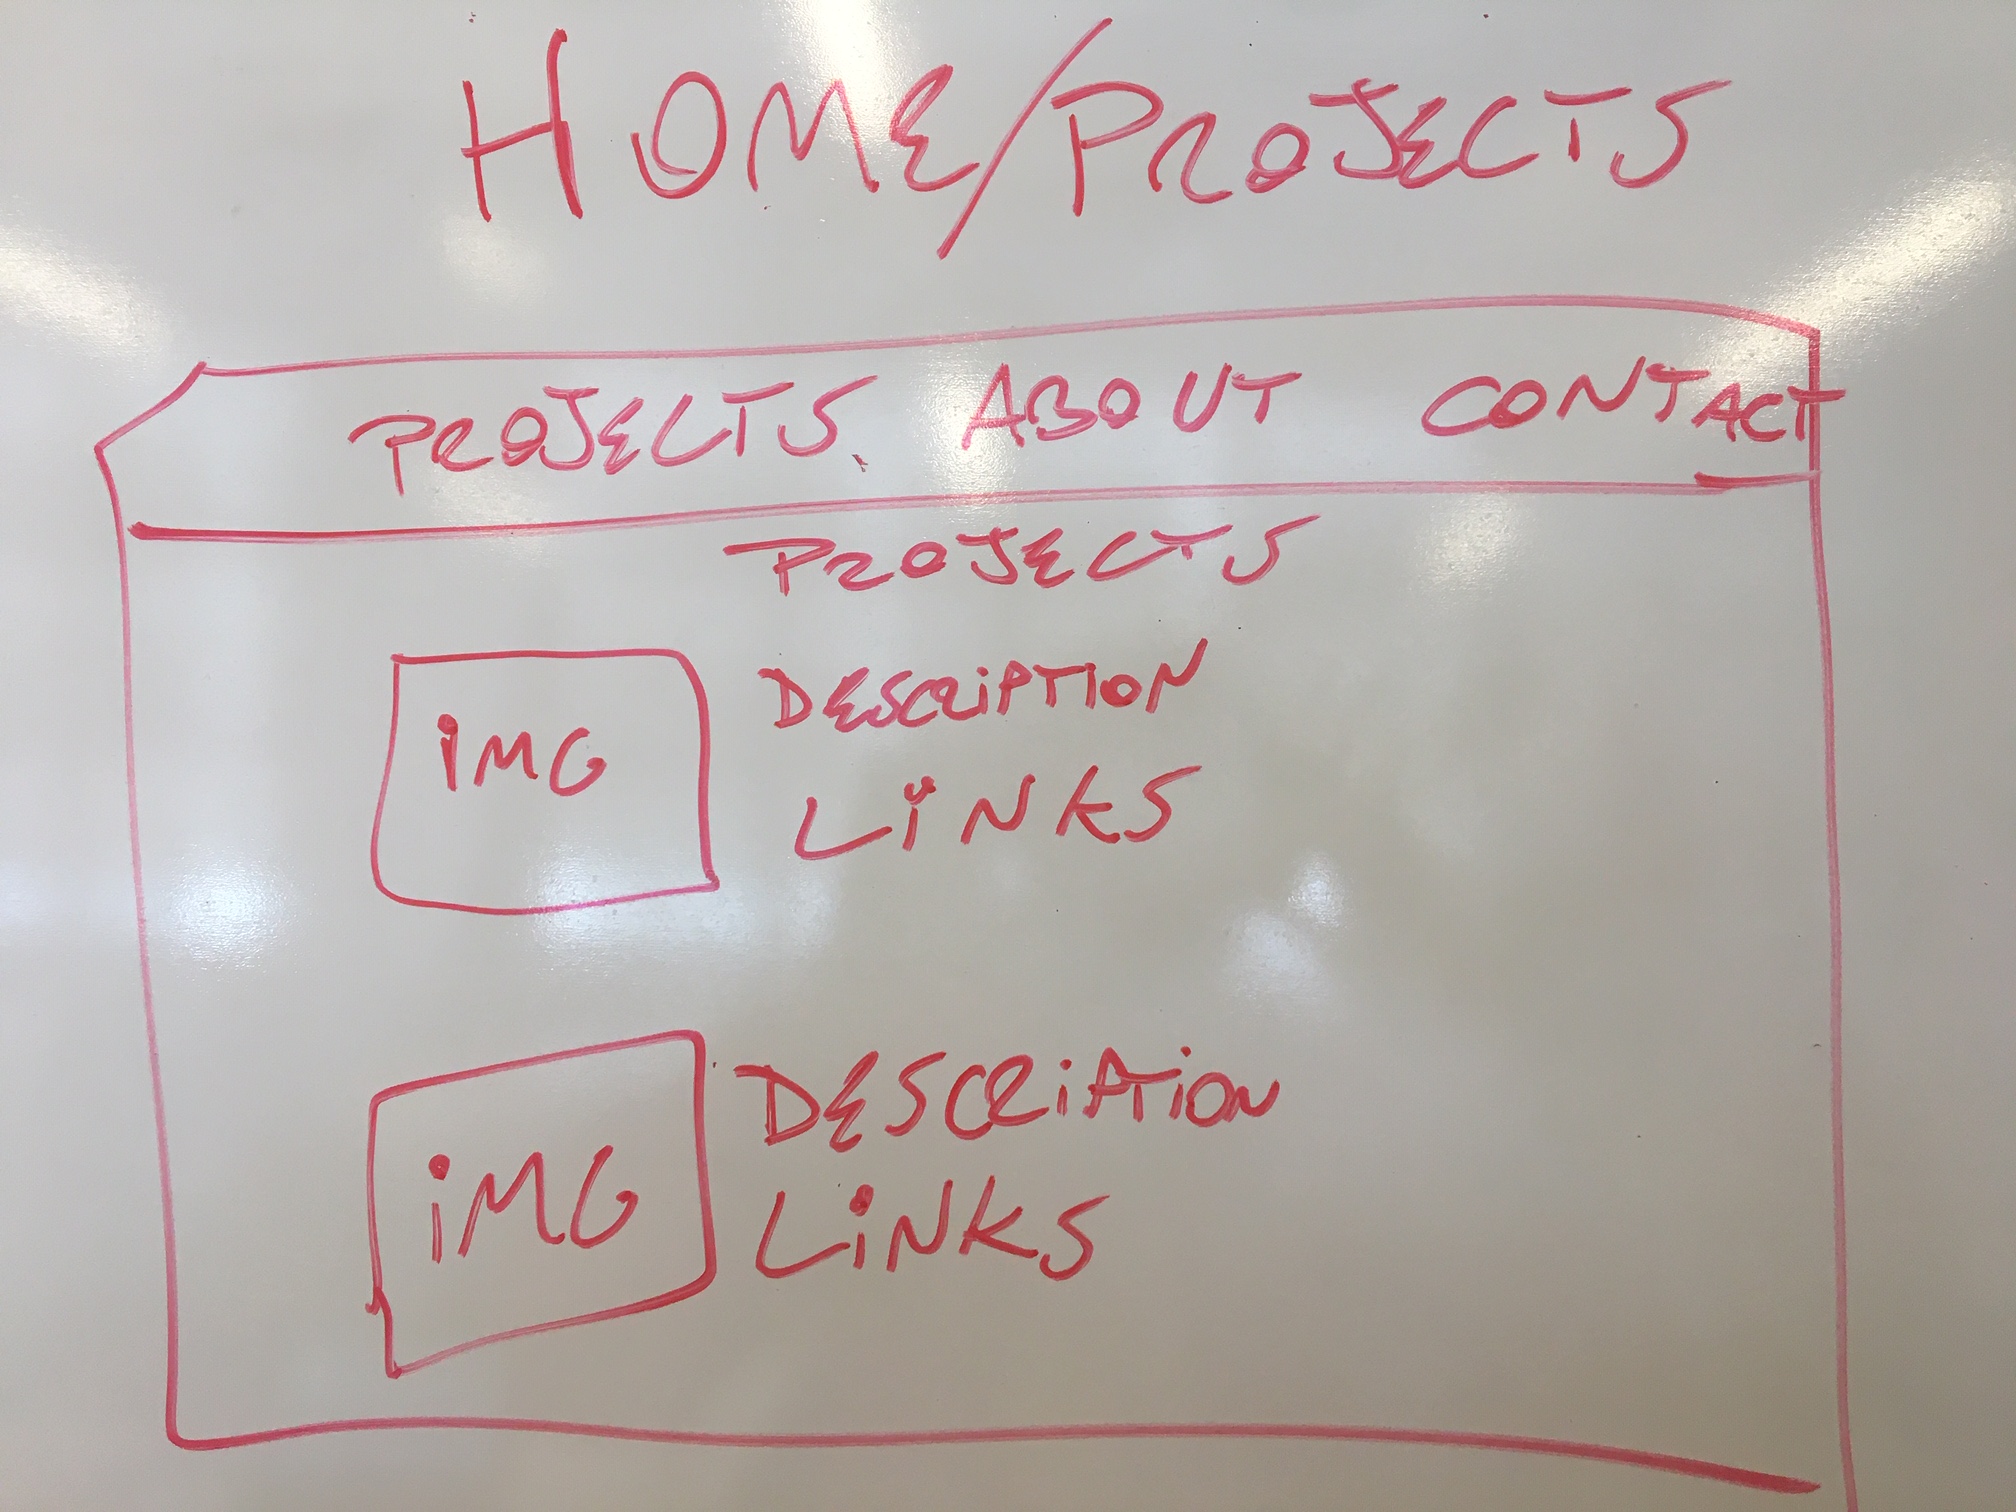 HOME/PROJECTS
PROJECTS ABOUT CONTACT
PROJECTS
iMG DESCRiPTiON
LiNKS
iMG DESCRiPTiON
LiNKS